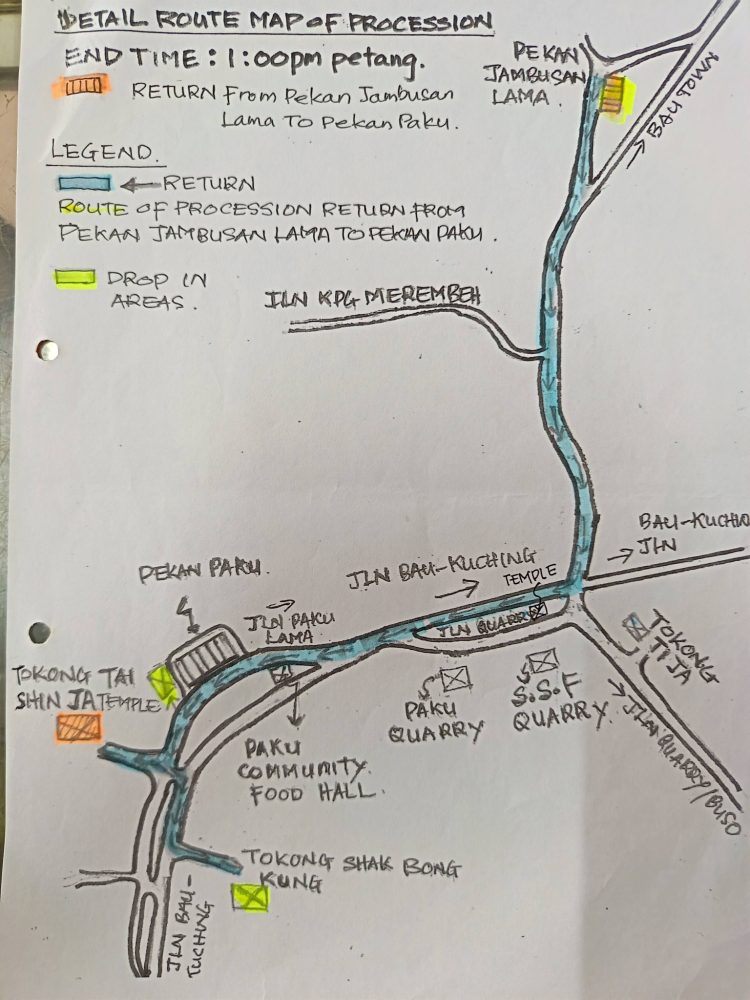 DETAIL ROUTE MAP OF PROCESSION
END TIME: 1:00pm petang.
RETURN From Pekan Jambusan
Lama To Pekan Paku.
LEGEND.
RETURN
ROUTE OF PROCESSION RETURN FROM
PEKAN JAMBUSAN LAMA TO PEKAN PAKU.
DROP IN
AREAS.
PEKAN
JAMBUSAN
LAMA.
BAU TOWN
JLN KPG MEREMBEH
BAU-KUCHING
JLN
JLN BAU-KUCHING
TEMPLE
PEKAN PAKU.
JLN PAKU
LAMA
JLN QUARRY
TOKONG
TI JA
TOKONG TAI
SHIN JA TEMPLE
PAKU
QUARRY
S.S.F
QUARRY.
JLN QUARRY/BUSO
PAKU
COMMUNITY.
FOOD HALL.
TOKONG SHAK BONG
KUNG
JLN BAU-
TUCHING